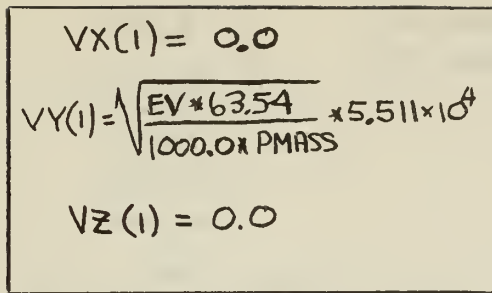 VX(1) = 0.0
VY(1) = √(EV*63.54 / 1000.0*PMASS) *5.511×10⁴
VZ(1) = 0.0